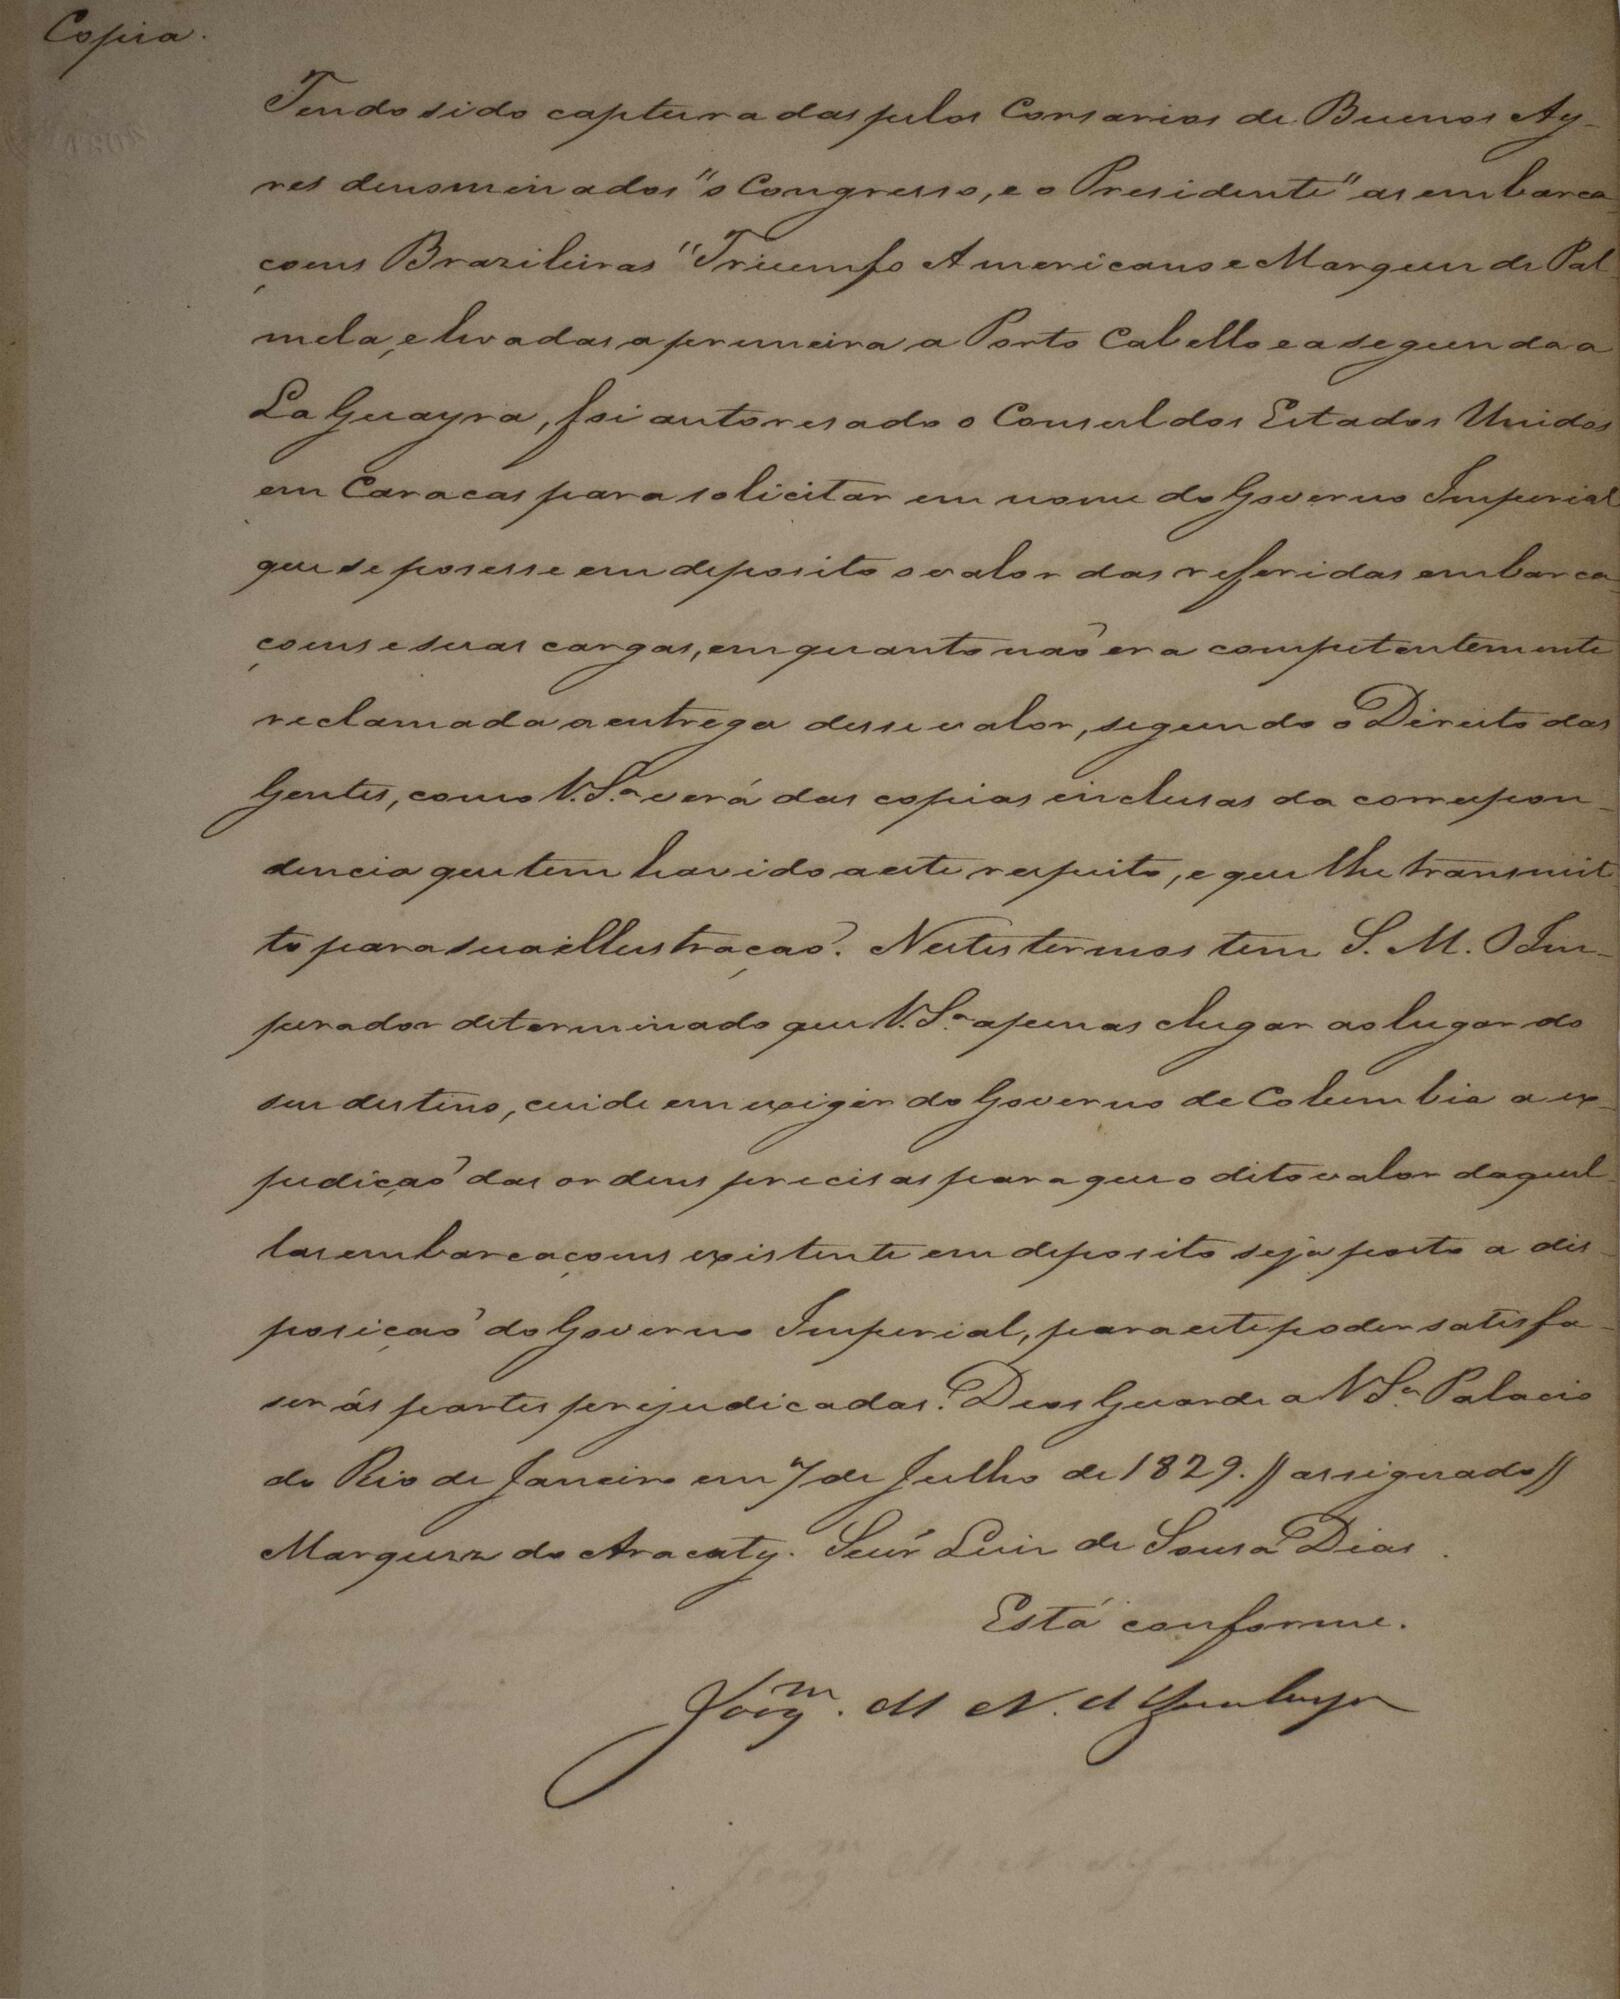 Copia.
Tendo sido capturadas pelos Corsarios de Buenos Ay-
res denominados "o Congresso, e o Presidente" as embarca-
çoens Brazileiras "Triumfo Americano e Marquez de Pal
mela, e levadas a primeira a Porto Cabello e a segunda a
La Guayra, foi autoresado o Consul dos Estados Unidos
em Caracas para solicitar em nome do Governo Imperial
que se posesse em deposito o valor das referidas embarca-
çoens e suas cargas, em quanto não era competentemente
reclamada a entrega desse valor, segundo o Direito das
Gentes, como V. S.ª verá das copias inclusas da correspon-
dencia que tem havido a este respeito, e que lhe transmit
to para sua illustração. Nestes termos tem S. M. O Im-
perador determinado que V. S.ª apenas chegar ao lugar do
seu destino, cuide em exigir do Governo de Columbia a ex-
pedição das ordens precisas para que o dito valor daquel-
las embarcaçoens existente em deposito seja posto a dis-
posição do Governo Imperial, para este poder satisfa-
ser ás partes prejudicadas. Deos Guarde a V S.ª Palacio
do Rio de Janeiro em 7 de Julho de 1829. // assignado //
Marquez do Aracaty. Senr̃ Luiz de Sousa Dias.
Está conforme.
Joaq.m M N. d'